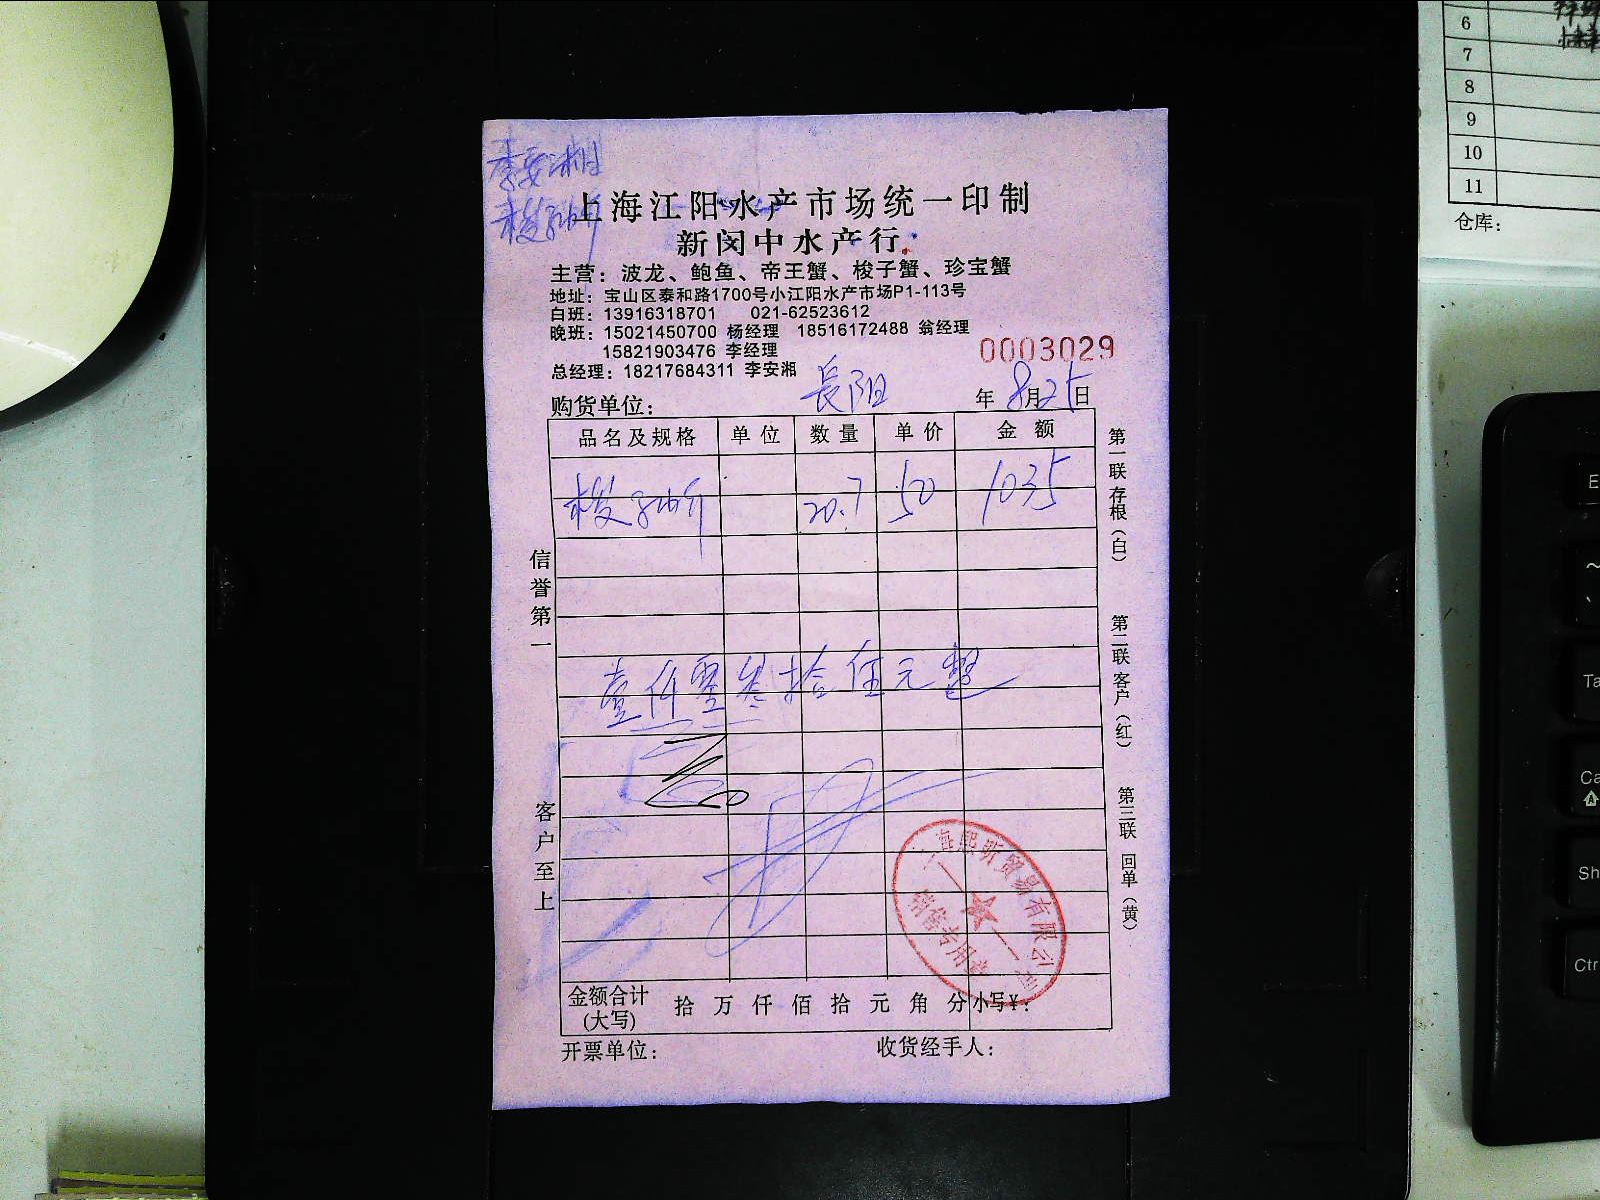 李安湘
梭子蟹
上海江阳水产市场统一印制
新闵中水产行
主营：波龙、鲍鱼、帝王蟹、梭子蟹、珍宝蟹
地址：宝山区泰和路1700号小江阳水产市场P1-113号
白班：13916318701 021-62523612
晚班：15021450700 杨经理 18516172488 翁经理
15821903476 李经理
0003029
总经理：18217684311 李安湘
购货单位： 長阳 年 8月25日
品名及规格 单位 数量 单价 金额
梭子蟹 20.7 50 1035
壹仟零叁拾伍元整
金额合计(大写) 拾 万 仟 佰 拾 元 角 分 小写¥：
开票单位： 收货经手人：
信誉第一
客户至上
第一联 存根（白）
第二联 客户（红）
第三联 回单（黄）
海熙昕贸易有限公司
销售专用章
6
7
8
9
10
11
仓库：
Ta
Ca
Sh
Ctr